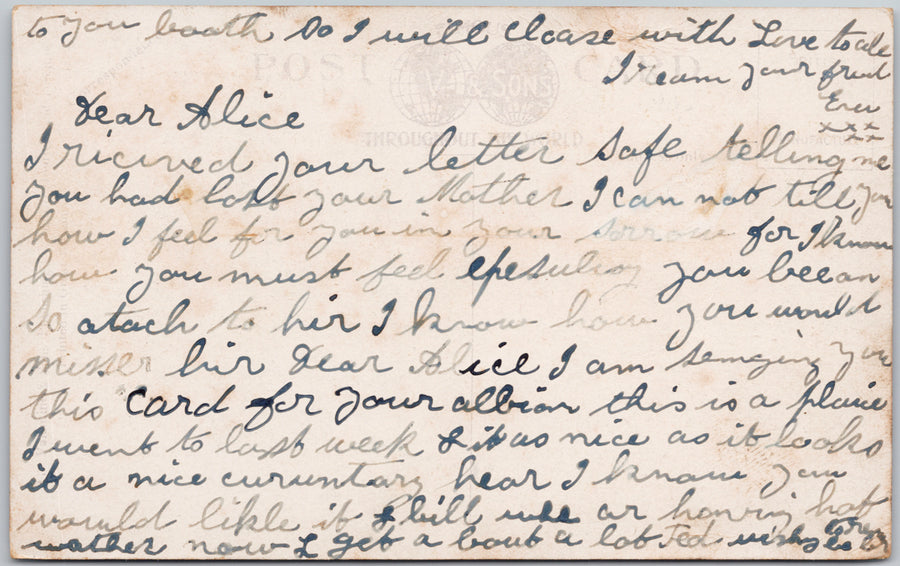 to you booth so I will cloase with Love to all
I ream your frind
xxx
xx
POST CARD
V & SONS
THROUGHOUT THE WORLD
Dear Alice
I ricived your letter safe telling me
you had lost your Mother I can not till you
how I feel for you in your sorrow for I know
how you must feel you beean
so atach to hir I know how you would
misser hir Dear Alice I am senging you
this card for your albion this is a plaice
I went to last week & it as nice as it looks
it a nice curuntary hear I know you
would likle it & bill wee ar honving hot
wather now & get a bout a lot Ted wishes